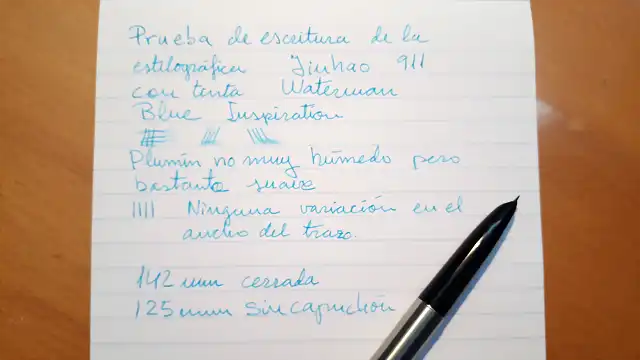 Prueba de escritura de la
estilográfica Jinhao 911
con tinta Waterman
Blue Inspiration
Plumín no muy húmedo pero
bastante suave
Ninguna variación en el
ancho del trazo.
142 mm cerrada
125 mm sin capuchón